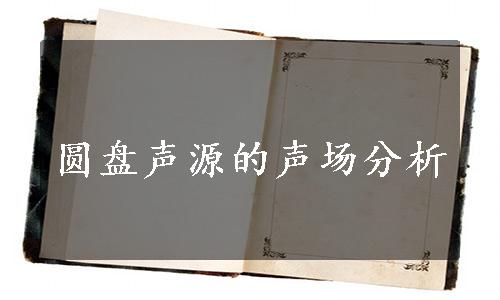 圆盘声源的声场分析